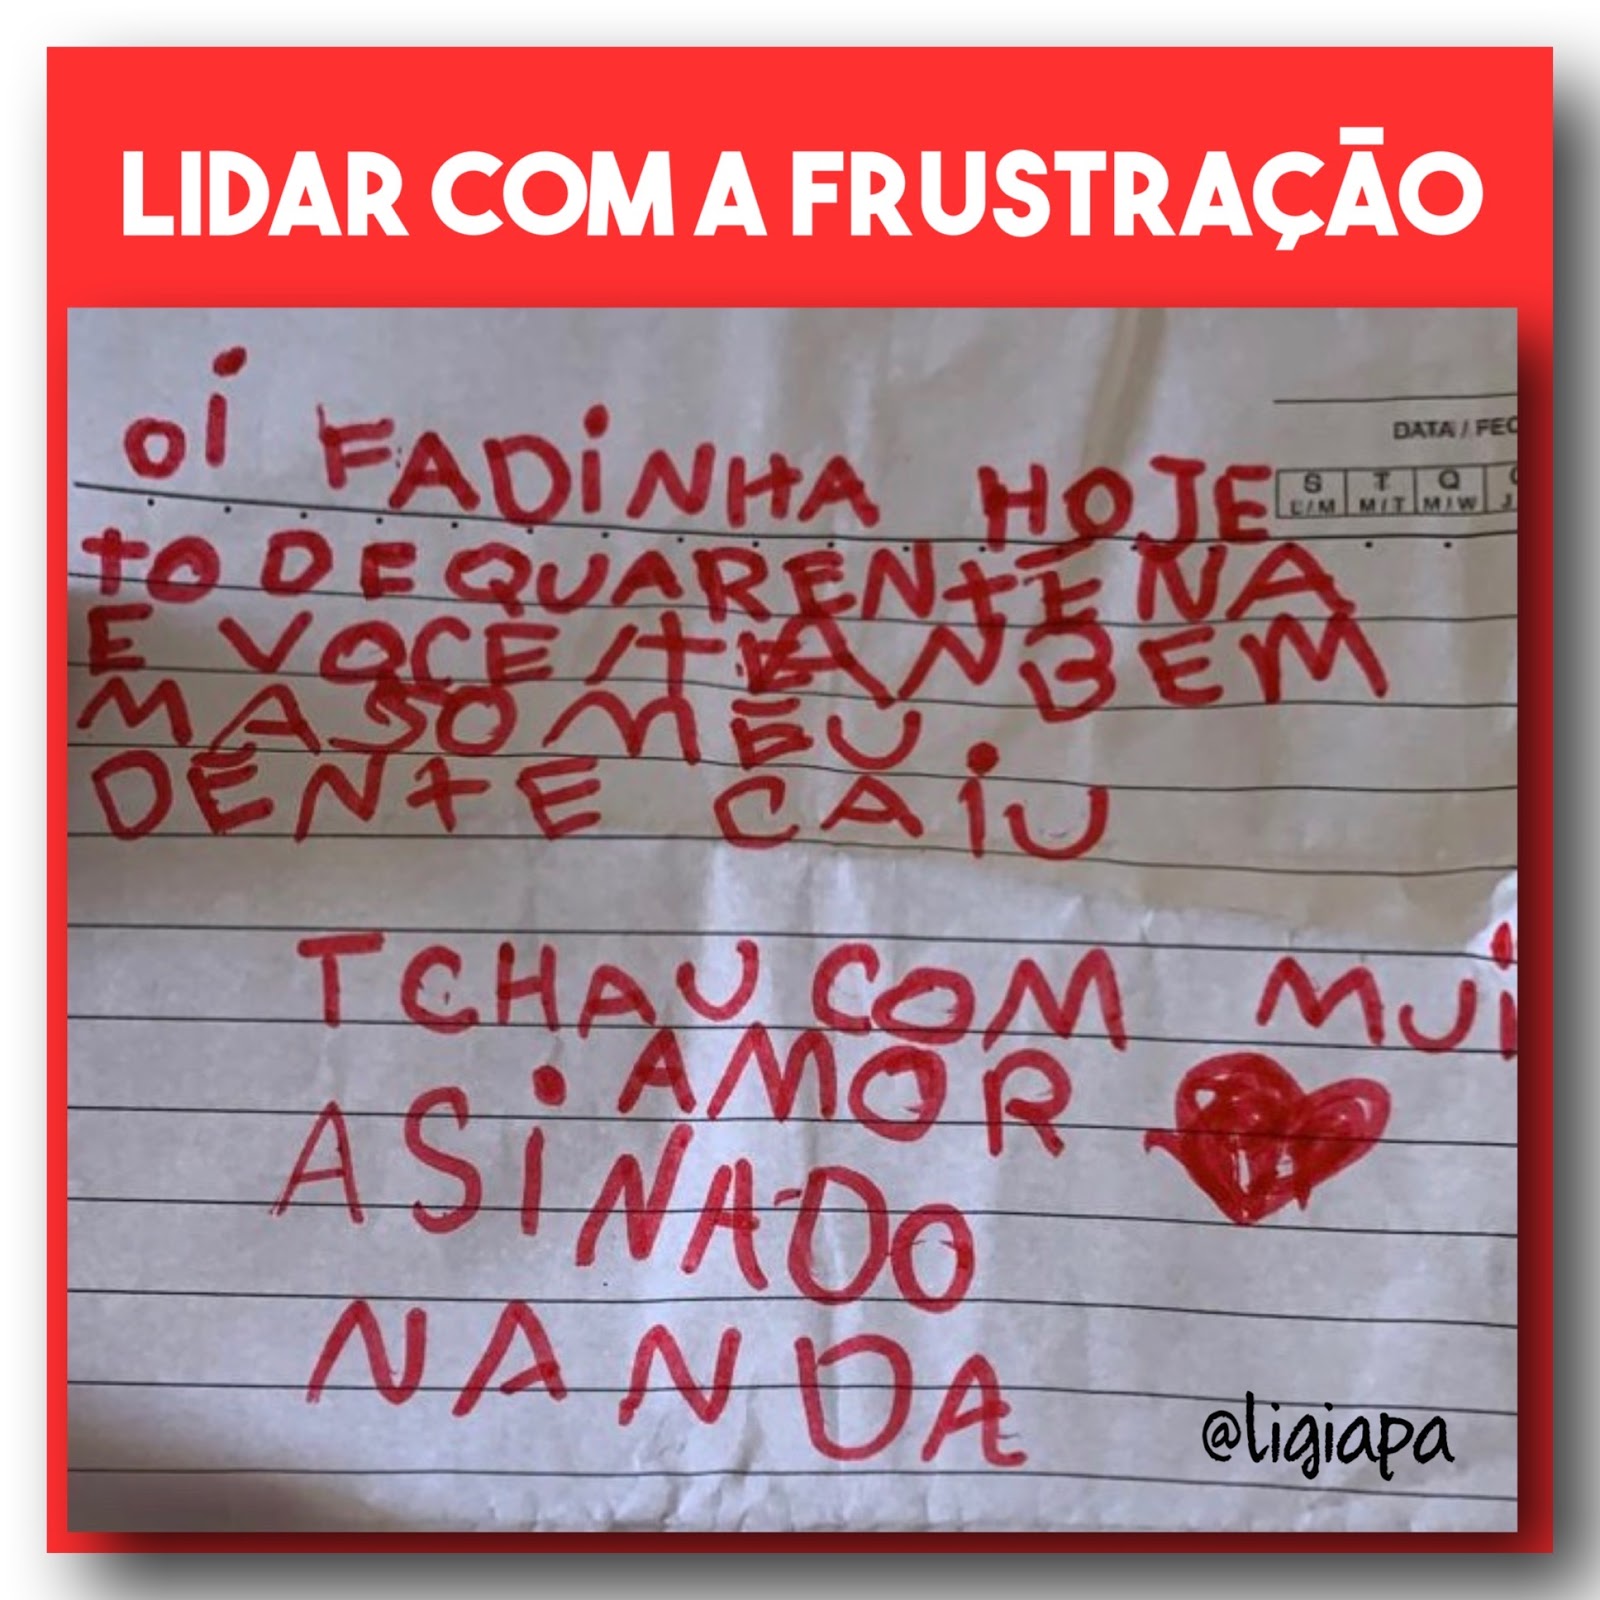 LIDAR COM A FRUSTRAÇÃO
DATA / FEC
S T Q
L/M M/T M/W J
Oi FADiNHA HOJE
tO DE QUARENtENA
E VOCE TANBEM
MAS O MEU
DENtE CAiU
TCHAU COM MUi
AMOR
ASiNADO
NANDA
@ligiapa